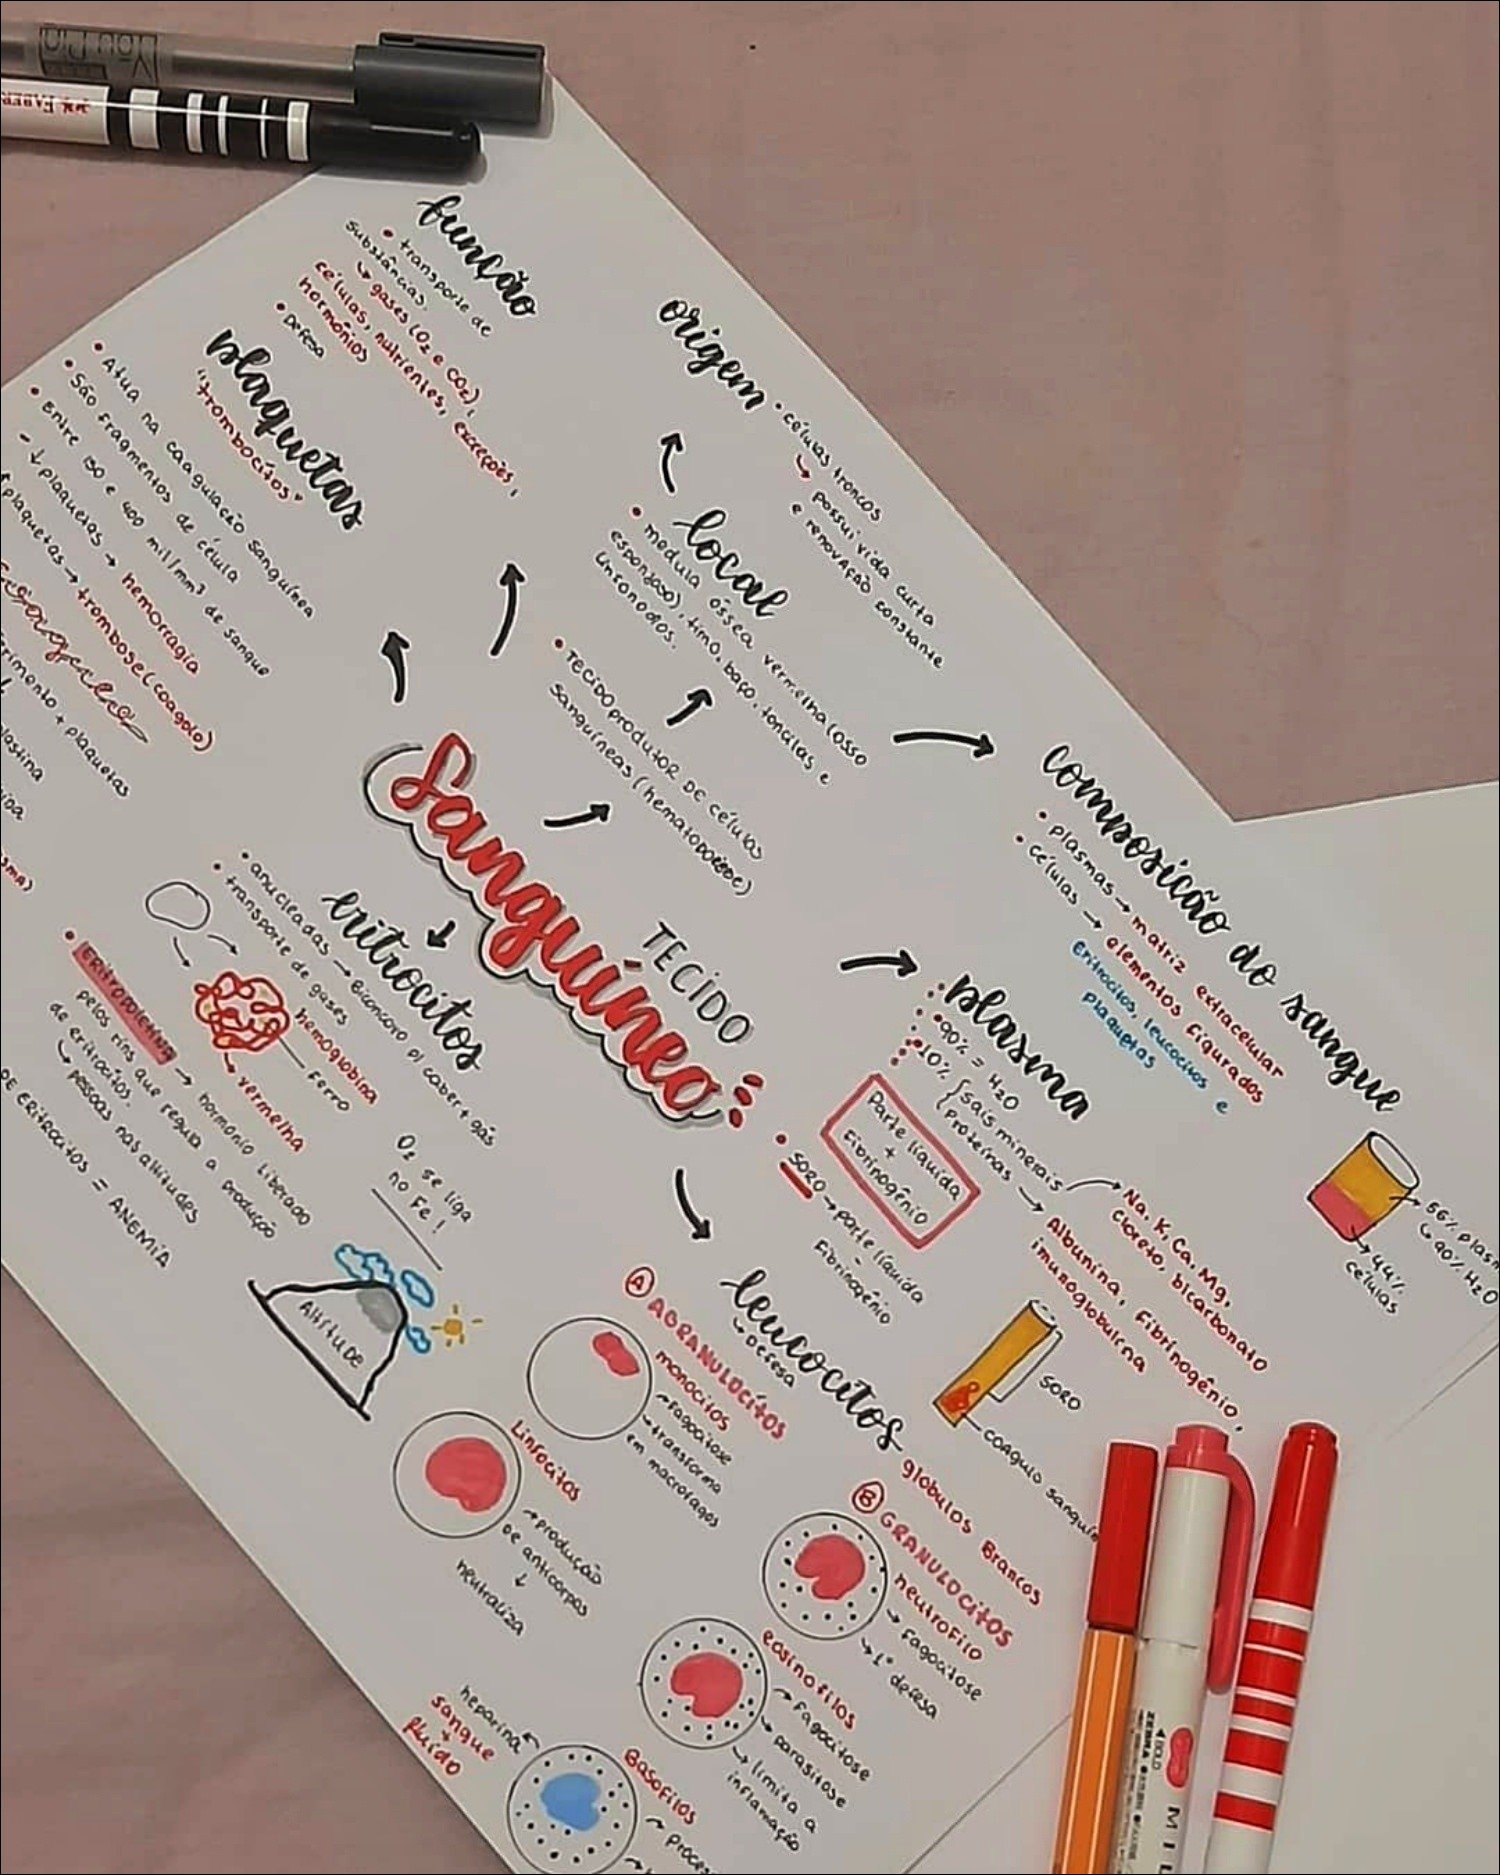 TECIDO
Sanguíneo
função
• transporte de
substâncias.
↳ gases (O₂ e CO₂),
células, nutrientes, excreções,
hormônios
• Defesa
origem
• células troncos
↳ possui vida curta
e renovação constante
local
• medula óssea vermelha (osso
esponjoso), timo, baço, tonsilas e
linfonodos.
• TECIDO produtor DE células
sanguíneas (hematopoiese)
plaquetas
"trombocitos"
• Atua na coagulação sanguínea
• São fragmentos de célula
• Entre 150 e 400 mil/mm³ de sangue
- ↓ plaquetas → hemorragia
↑ plaquetas → trombose (coagulo)
+ plaquetas
composição do sangue
• plasmas → matriz extracelular
• células → elementos figurados
Eritrocitos, leucocitos e
plaquetas
→ 44%
células
↳ 90% H₂O
plasma
• 90% = H₂O
• 10% { sais minerais → Na, K, Ca, Mg,
cloreto, bicarbonato
{ proteínas → Albumina, Fibrinogênio,
imunoglobulina
Parte líquida
+
Fibrinogênio
• SORO → parte líquida
-
Fibrinogênio
SORO
coagulo
eritrocitos
• anucleadas → Biconcavo p/ caber + gás
• transporte de gases
hemoglobina
FERRO
vermelha
• ERITROPOIETINA → hormônio liberado
pelos rins que regula a produção
de eritrocitos.
↳ pessoas nas altitudes
DE ERITROCITOS = ANEMIA
O₂ se liga
no Fe!
Altitude
leucocitos
globulos Brancos
↳ Defesa
A AGRANULOCITOS
monocitos
→ Fagocitose
→ transforma
em macrofagos
Linfocitos
→ produção
DE anticorpos
↓
neutraliza
B GRANULOCITOS
neutrofilo
→ Fagocitose
→ 1ª defesa
eosinofilos
→ Fagocitose
→ parasitose
→ limita a
inflamação
Basofilos
heparina
sangue
+
fluido